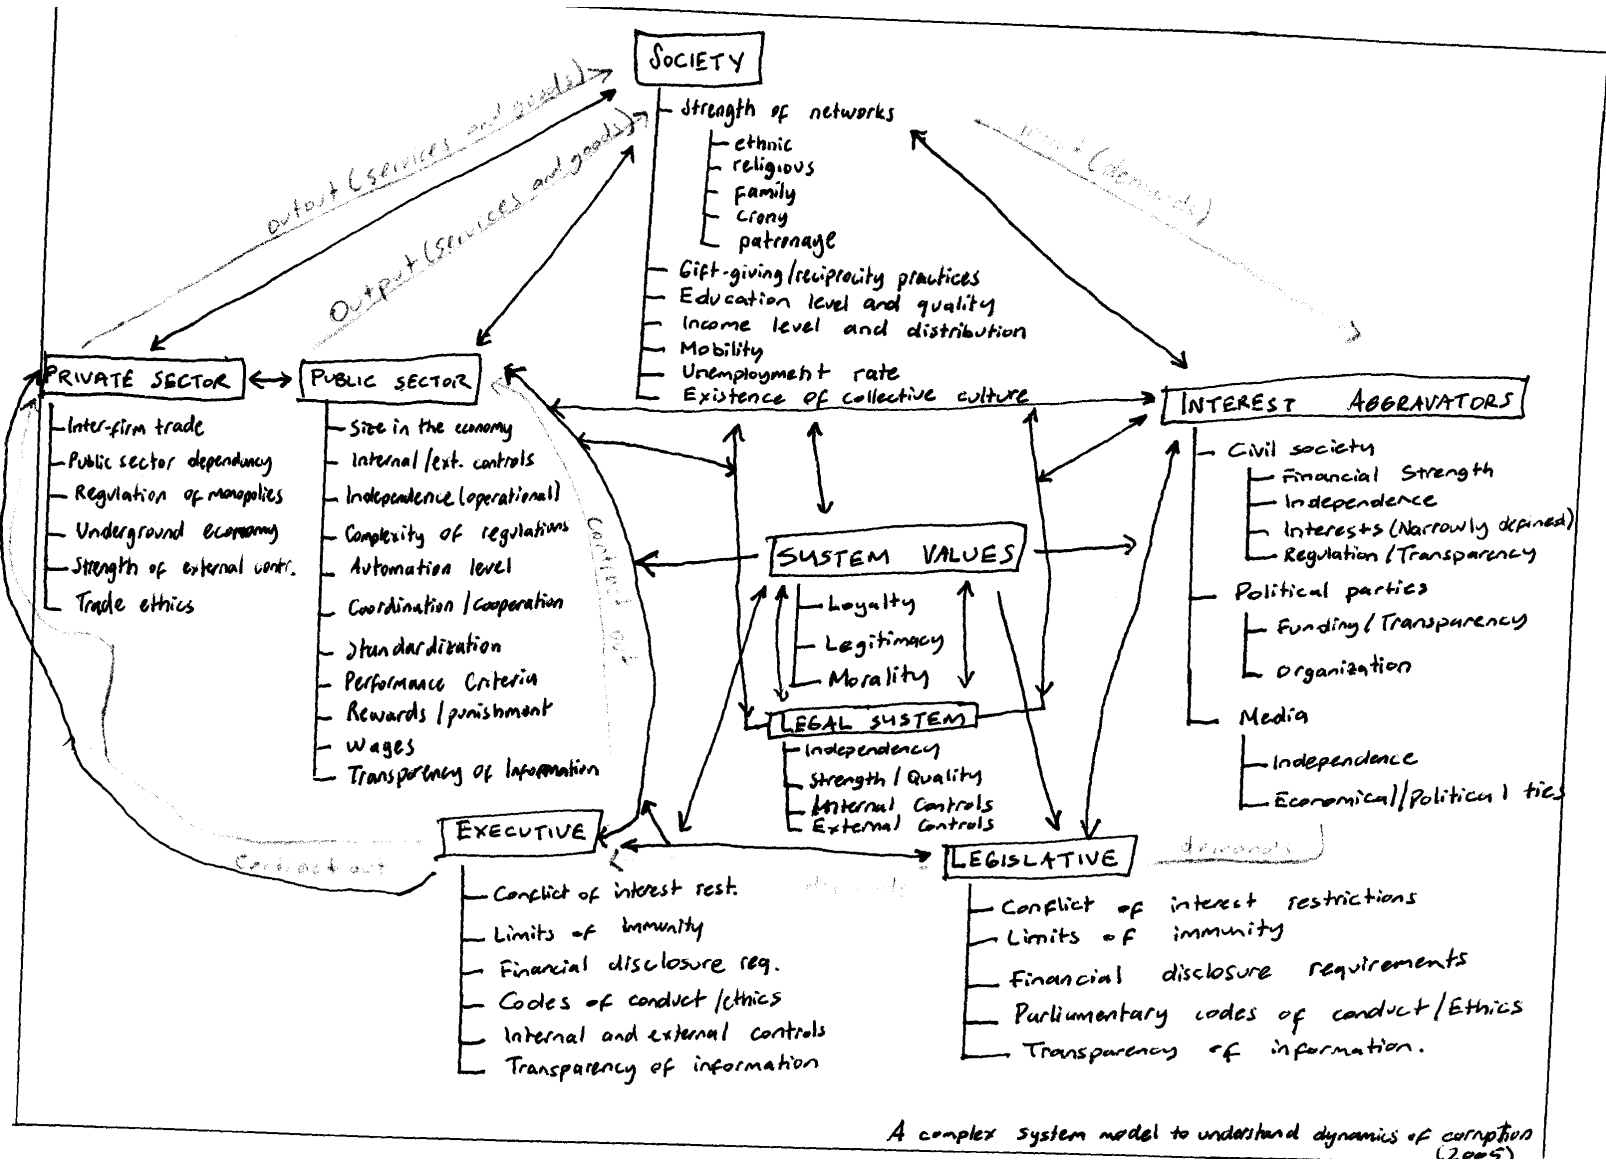 SOCIETY
Strength of networks
ethnic
religious
Family
Crony
patronage
Gift-giving/reciprocity practices
Education level and quality
Income level and distribution
Mobility
Unemployment rate
Existence of collective culture
output (services and goods)
Output (services and goods)
(demands)
PRIVATE SECTOR
Inter-firm trade
Public sector dependency
Regulation of monopolies
Underground economy
Strength of external contr.
Trade ethics
PUBLIC SECTOR
Size in the economy
Internal/ext. controls
Independence (operational)
Complexity of regulations
Automation level
Coordination/Cooperation
Standardization
Performance Criteria
Rewards/punishment
Wages
Transparency of Information
contract out
SYSTEM VALUES
Loyalty
Legitimacy
Morality
LEGAL SYSTEM
Independency
Strength/Quality
Internal Controls
External Controls
INTEREST AGGRAVATORS
Civil society
Financial Strength
Independence
Interests (Narrowly defined)
Regulation/Transparency
Political parties
Funding/Transparency
Organization
Media
Independence
Economical/Political ties
EXECUTIVE
Contract out
Conflict of interest rest.
Limits of immunity
Financial disclosure req.
Codes of conduct/ethics
Internal and external controls
Transparency of information
LEGISLATIVE
demands
Conflict of interest restrictions
Limits of immunity
Financial disclosure requirements
Parliumentary codes of conduct/Ethics
Transparency of information.
A complex system model to understand dynamics of corruption
(2005)